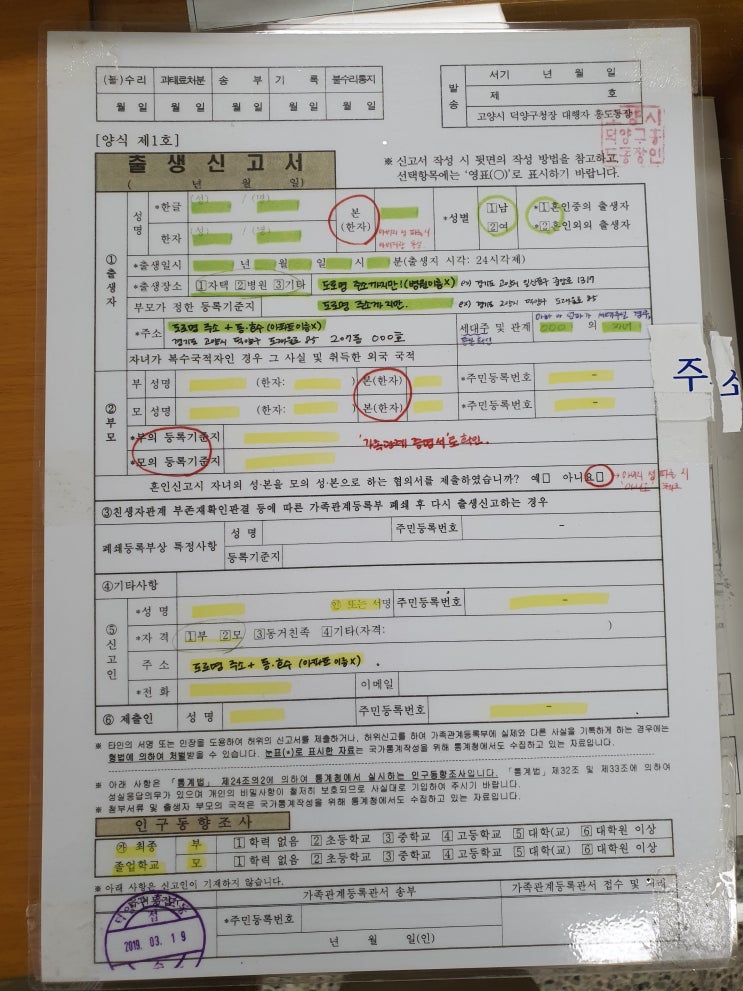 (돌)수리 과태료처분 송 부 기 록 불수리통지
월 일 월 일 월 일 월 일 월 일
발송
서기 년 월 일
제 호
고양시 덕양구청장 대행자 흥도동장
[양식 제1호]
출생신고서
( 년 월 일)
※ 신고서 작성 시 뒷면의 작성 방법을 참고하고,
선택항목에는 '영표(○)'로 표시하기 바랍니다.
①출생자
성명
*한글 (성) / (명)
한자 (성) / (명)
본
(한자)
*성별
①남
②여
*①혼인중의 출생자
*②혼인외의 출생자
*출생일시 년 월 일 시 분(출생지 시각: 24시각제)
*출생장소 ①자택 ②병원 ③기타 도로명 주소까지만!(병원이름X)
부모가 정한 등록기준지 도로명 주소까지만.
*주소 도로명 주소 + 동.호수 (아파트이름X)
경기도 고양시 덕양구 도래울로 85 207동 000호
세대주 및 관계 000 의 자녀
자녀가 복수국적자인 경우 그 사실 및 취득한 외국 국적
②부모
부 성명 (한자: ) 본(한자) *주민등록번호 -
모 성명 (한자: ) 본(한자) *주민등록번호 -
*부의 등록기준지
'가족관계 증명서'로 확인.
*모의 등록기준지
혼인신고시 자녀의 성·본을 모의 성·본으로 하는 협의서를 제출하였습니까? 예□ 아니요□
아빠의 성 따를 시
주소
③친생자관계 부존재확인판결 등에 따른 가족관계등록부 폐쇄 후 다시 출생신고하는 경우
폐쇄등록부상 특정사항
성 명 주민등록번호 -
등록기준지
④기타사항
⑤신고인
*성 명 ㊞ 또는 서명 주민등록번호 -
*자 격 ①부 ②모 ③동거친족 ④기타(자격: )
주 소 도로명 주소 + 동.호수 (아파트 이름X)
*전 화 이메일
⑥ 제출인 성 명 주민등록번호 -
※ 타인의 서명 또는 인장을 도용하여 허위의 신고서를 제출하거나, 허위신고를 하여 가족관계등록부에 실제와 다른 사실을 기록하게 하는 경우에는
형법에 의하여 처벌받을 수 있습니다. 눈표(*)로 표시한 자료는 국가통계작성을 위해 통계청에서도 수집하고 있는 자료입니다.
※ 아래 사항은 「통계법」 제24조의2에 의하여 통계청에서 실시하는 인구동향조사입니다. 「통계법」제32조 및 제33조에 의하여
성실응답의무가 있으며 개인의 비밀사항이 철저히 보호되므로 사실대로 기입하여 주시기 바랍니다.
※ 첨부서류 및 출생자 부모의 국적은 국가통계작성을 위해 통계청에서도 수집하고 있는 자료입니다.
인구동향조사
㉮ 최종
졸업학교
부 ①학력 없음 ②초등학교 ③중학교 ④고등학교 ⑤대학(교) ⑥대학원 이상
모 ①학력 없음 ②초등학교 ③중학교 ④고등학교 ⑤대학(교) ⑥대학원 이상
※ 아래 사항은 신고인이 기재하지 않습니다.
가족관계등록관서 송부 가족관계등록관서 접수 및 처리
*주민등록번호 -
년 월 일(인)
2019. 03. 19